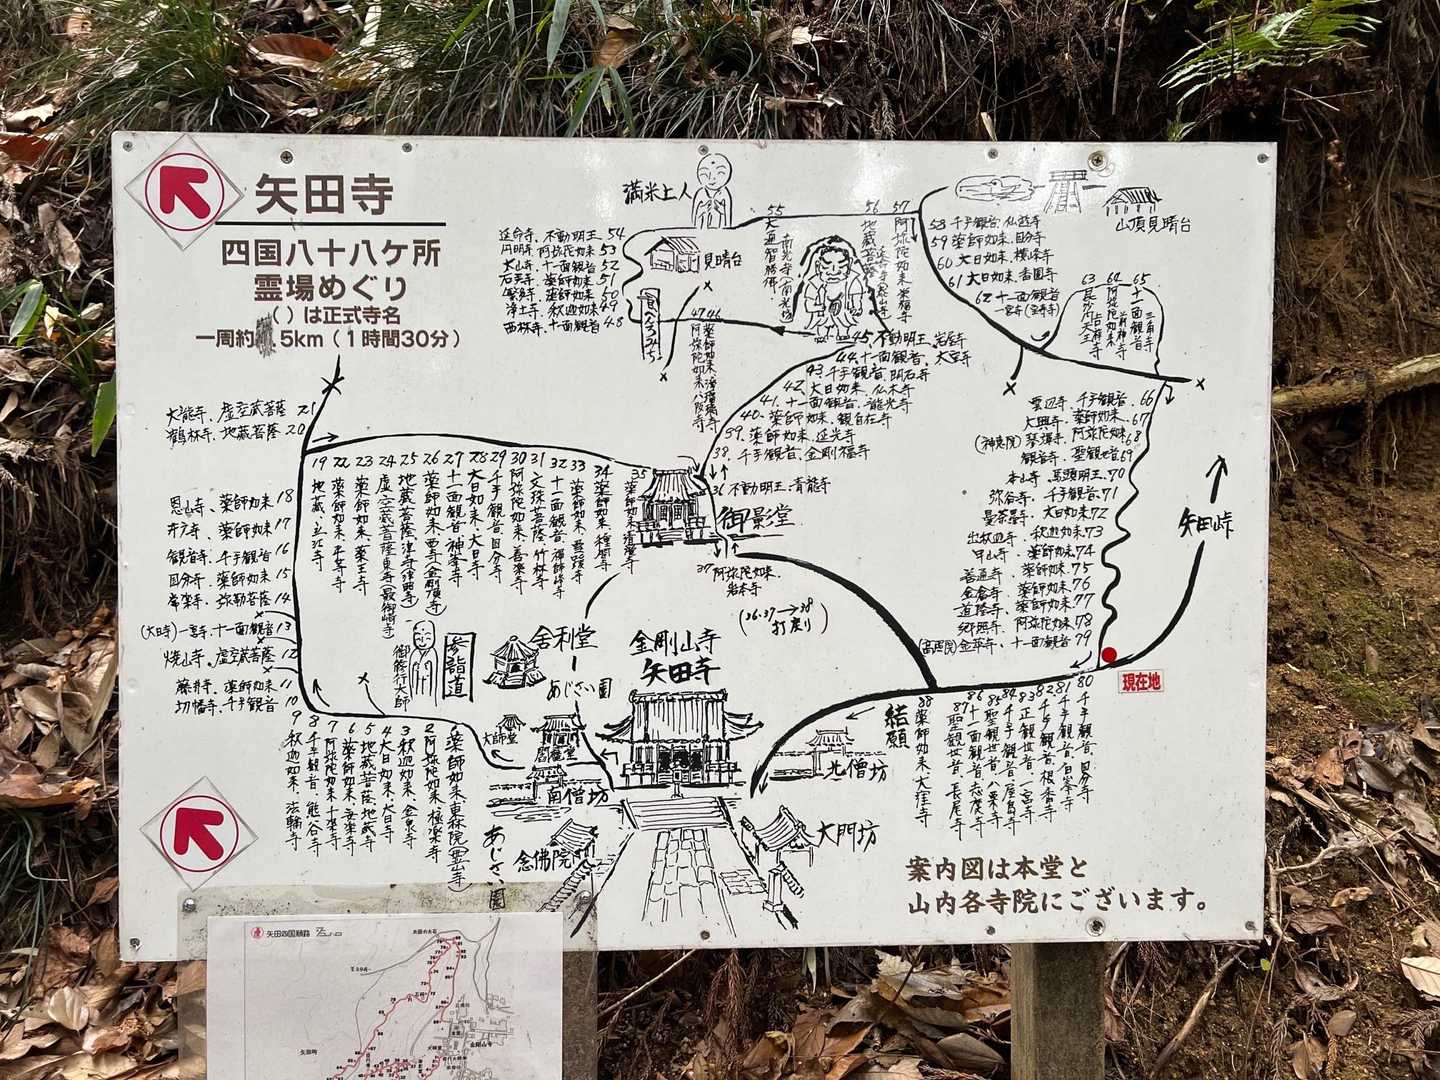 矢田寺
四国八十八ケ所
霊場めぐり
( )は正式寺名
一周約 5km(1時間30分)
満米上人
見晴台
山頂見晴台
延命寺、不動明王 54
円明寺 阿弥陀如来 53
太山寺、十一面観音 52
石手寺、薬師如来 51
繁多寺、薬師如来 50
浄土寺、釈迦如来 49
西林寺、十一面観音 48
55
56 地蔵菩薩
57 阿弥陀如来 栄福寺
58 千手観音 仙遊寺
59 薬師如来 国分寺
60 大日如来 横峰寺
61 大日如来 香園寺
62 十一面観音
63 毘沙門天王 吉祥寺
64 阿弥陀如来 前神寺
65 十一面観音 三角寺
47 阿弥陀如来 八坂寺
46 薬師如来 浄瑠璃寺
45 不動明王、岩屋寺
44、十一面観音、大宝寺
43、千手観音、明石寺
42、大日如来、仏木寺
41、十一面観音、龍光寺
40、薬師如来、観自在寺
39、薬師如来、延光寺
38、千手観音、金剛福寺
36 不動明王、青龍寺
御影堂
37 阿弥陀如来、
岩本寺
(36・37→38
打戻り)
雲辺寺、千手観音、66
大興寺、薬師如来、67
(神恵院) 琴弾寺、阿弥陀如来 68
観音寺、聖観世音 69
本山寺、馬頭明王、70
弥谷寺、千手観音、71
曼荼羅寺、大日如来 72
出釈迦寺、釈迦如来 73
甲山寺、薬師如来 74
善通寺、薬師如来 75
金倉寺、薬師如来 76
道隆寺、薬師如来 77
郷照寺、阿弥陀如来 78
金華寺、十一面観音 79
矢田峠
現在地
大龍寺、虚空蔵菩薩 21
鶴林寺、地蔵菩薩 20
恩山寺、薬師如来 18
井戸寺、薬師如来 17
観音寺、千手観音 16
国分寺、薬師如来 15
常楽寺、弥勒菩薩 14
(大日寺) 一宮寺、十一面観音 13
焼山寺、虚空蔵菩薩 12
藤井寺、薬師如来 11
切幡寺、千手観音 10
19 地蔵、立江寺
22 薬師如来、平等寺
23 薬師如来、薬王寺
24 虚空蔵菩薩 東寺(最御崎寺)
25 地蔵菩薩、津寺(津照寺)
26 薬師如来、西寺(金剛頂寺)
27 十一面観音、神峯寺
28 大日如来、大日寺
29 千手観音、国分寺
30 阿弥陀如来、善楽寺
31 文殊菩薩、竹林寺
32 十一面観音、禅師峰寺
33 薬師如来、雪蹊寺
34 薬師如来、種間寺
35 薬師如来、清瀧寺
御修行大師
参詣道
舎利堂
あじさい園
金剛山寺
矢田寺
大師堂
閻魔堂
南僧坊
北僧坊
大門坊
念佛院
あじさい園
結願
9 釈迦如来、法輪寺
8 千手観音、熊谷寺
7 阿弥陀如来 十楽寺
6 薬師如来 安楽寺
5 地蔵菩薩 地蔵寺
4 大日如来 大日寺
3 釈迦如来、金泉寺
2 阿弥陀如来、極楽寺
薬師如来、東林院(霊山寺)
88 薬師如来、大窪寺
87 聖観世音、長尾寺
86 十一面観音 志度寺
85 聖観世音、八栗寺
84 千手観音、屋島寺
83 正観世音、一宮寺
82 千手観音、根香寺
81 千手観音、白峯寺
80 千手観音、国分寺
案内図は本堂と
山内各寺院にございます。
矢田四国順路
矢田町